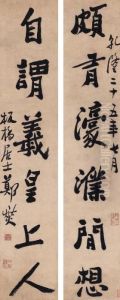 頗有濠濮間想
乾隆二十五年七月
自謂羲皇上人
板橋居士鄭燮